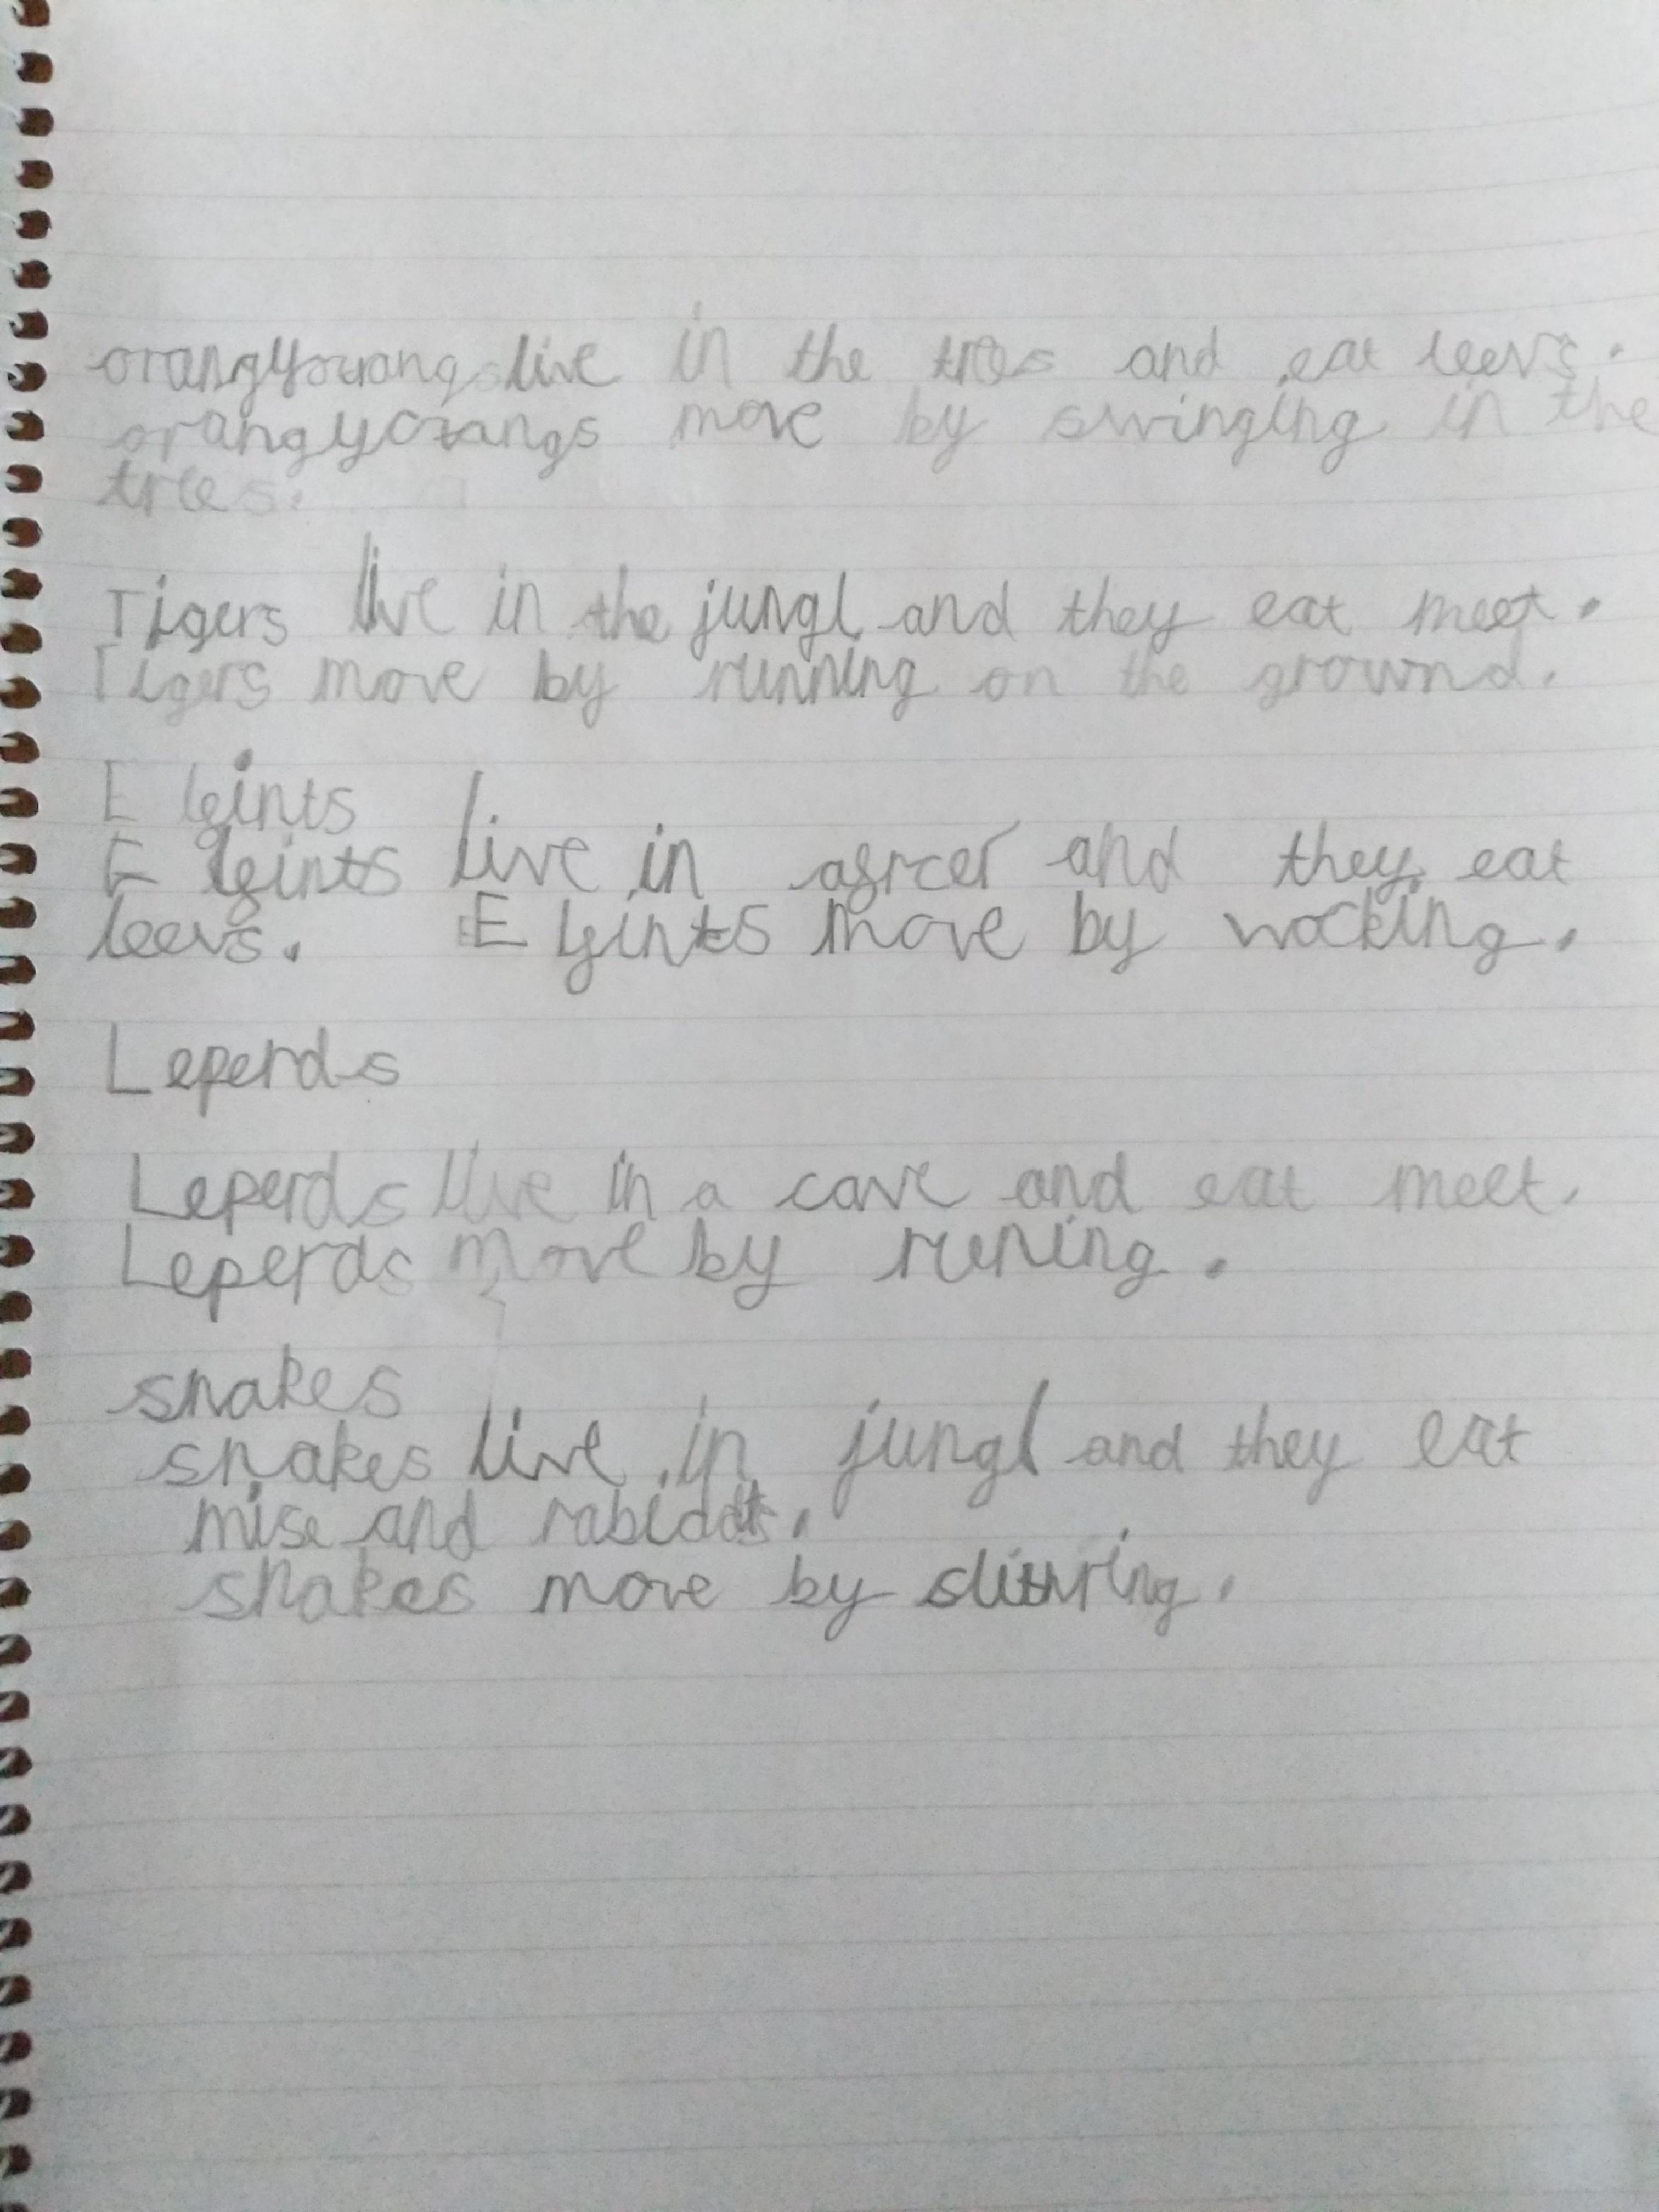 orangyowangs live in the trees and eat leevs.
orangyotangs move by swinging in the
trees.
Tigers live in the jungl and they eat meet.
Tigers move by running on the grownd.
E lgints
E lgints live in and they eat
leevs. E lgints move by wocking.
Leperds
Leperds live in a cave and eat meet.
Leperds move by runing.
snakes
snakes live in jungl and they eat
mise and
snakes move by